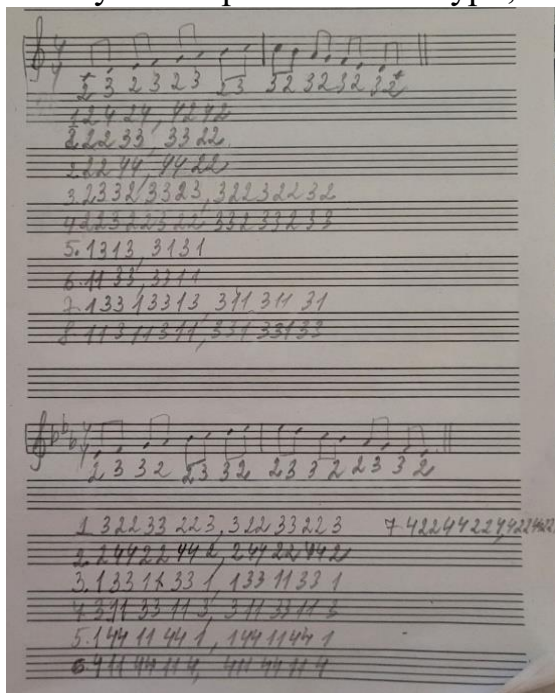 2 3 2 3 2 3 2 3 3 2 3 2 3 2 3 2
1. 2424, 4242
2. 2233, 3322.
2244, 4422
3. 23323323, 32232232
4. 22322322 33233233
5. 1313, 3131
6. 1133, 3311
7. 13313313, 311 311 31
8. 11311311, 33133133
2 3 3 2 2 3 3 2 2 3 3 2 2 3 3 2
1. 32233 223, 32233223 7. 42244224,
2. 24422 442, 24422442
3. 133 11 33 1, 133 1133 1
4. 311 33 11 3, 311 3311 3
5. 144 11 44 1, 1441144 1
6. 411 44 11 4, 411 44 11 4